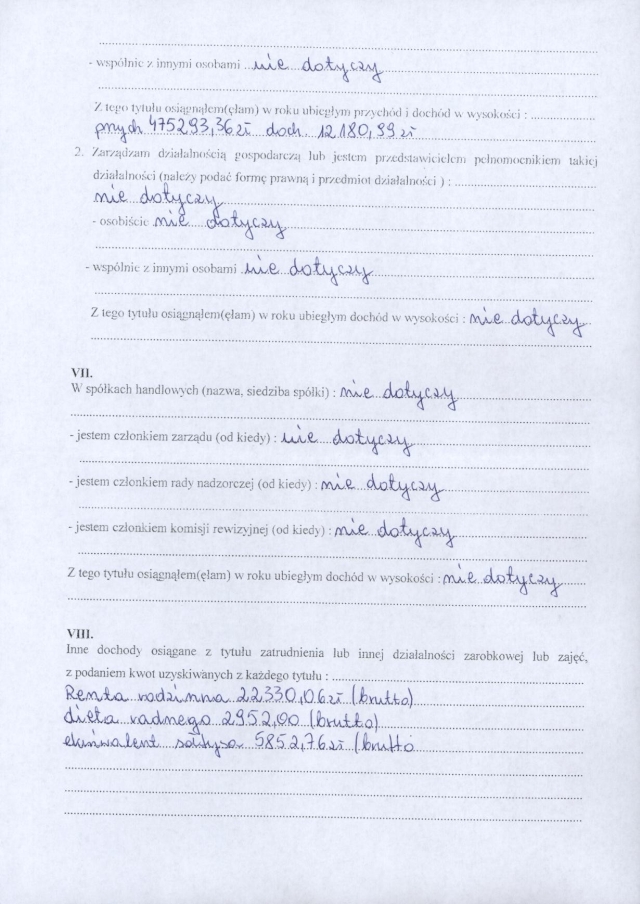 - wspólnie z innymi osobami nie dotyczy
Z tego tytułu osiągnąłem(ęłam) w roku ubiegłym przychód i dochód w wysokości :
przych 475293,36 zł doch. 12180,99 zł
2. Zarządzam działalnością gospodarczą lub jestem przedstawicielem pełnomocnikiem takiej
działalności (należy podać formę prawną i przedmiot działalności ) :
nie dotyczy
- osobiście nie dotyczy
- wspólnie z innymi osobami nie dotyczy
Z tego tytułu osiągnąłem(ęłam) w roku ubiegłym dochód w wysokości : nie dotyczy
VII.
W spółkach handlowych (nazwa, siedziba spółki) : nie dotyczy
- jestem członkiem zarządu (od kiedy) : nie dotyczy
- jestem członkiem rady nadzorczej (od kiedy) : nie dotyczy
- jestem członkiem komisji rewizyjnej (od kiedy) : nie dotyczy
Z tego tytułu osiągnąłem(ęłam) w roku ubiegłym dochód w wysokości : nie dotyczy
VIII.
Inne dochody osiągane z tytułu zatrudnienia lub innej działalności zarobkowej lub zajęć,
z podaniem kwot uzyskiwanych z każdego tytułu :
Renta rodzinna 22330,06 zł (brutto)
dieta radnego 2952,00 (brutto)
ekwiwalent sołtysa 5852,76 zł (brutto